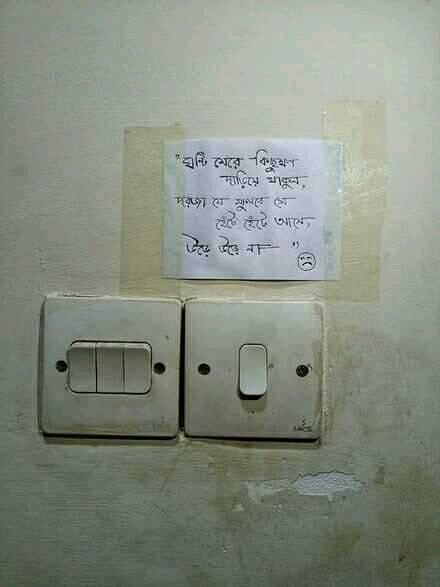 "ঘন্টি মেরে কিছুক্ষণ
দাড়িয়ে থাকুন,
দরজা যে খুলবে সে
হেঁটে হেঁটে আসে,
উড়ে উড়ে না — "